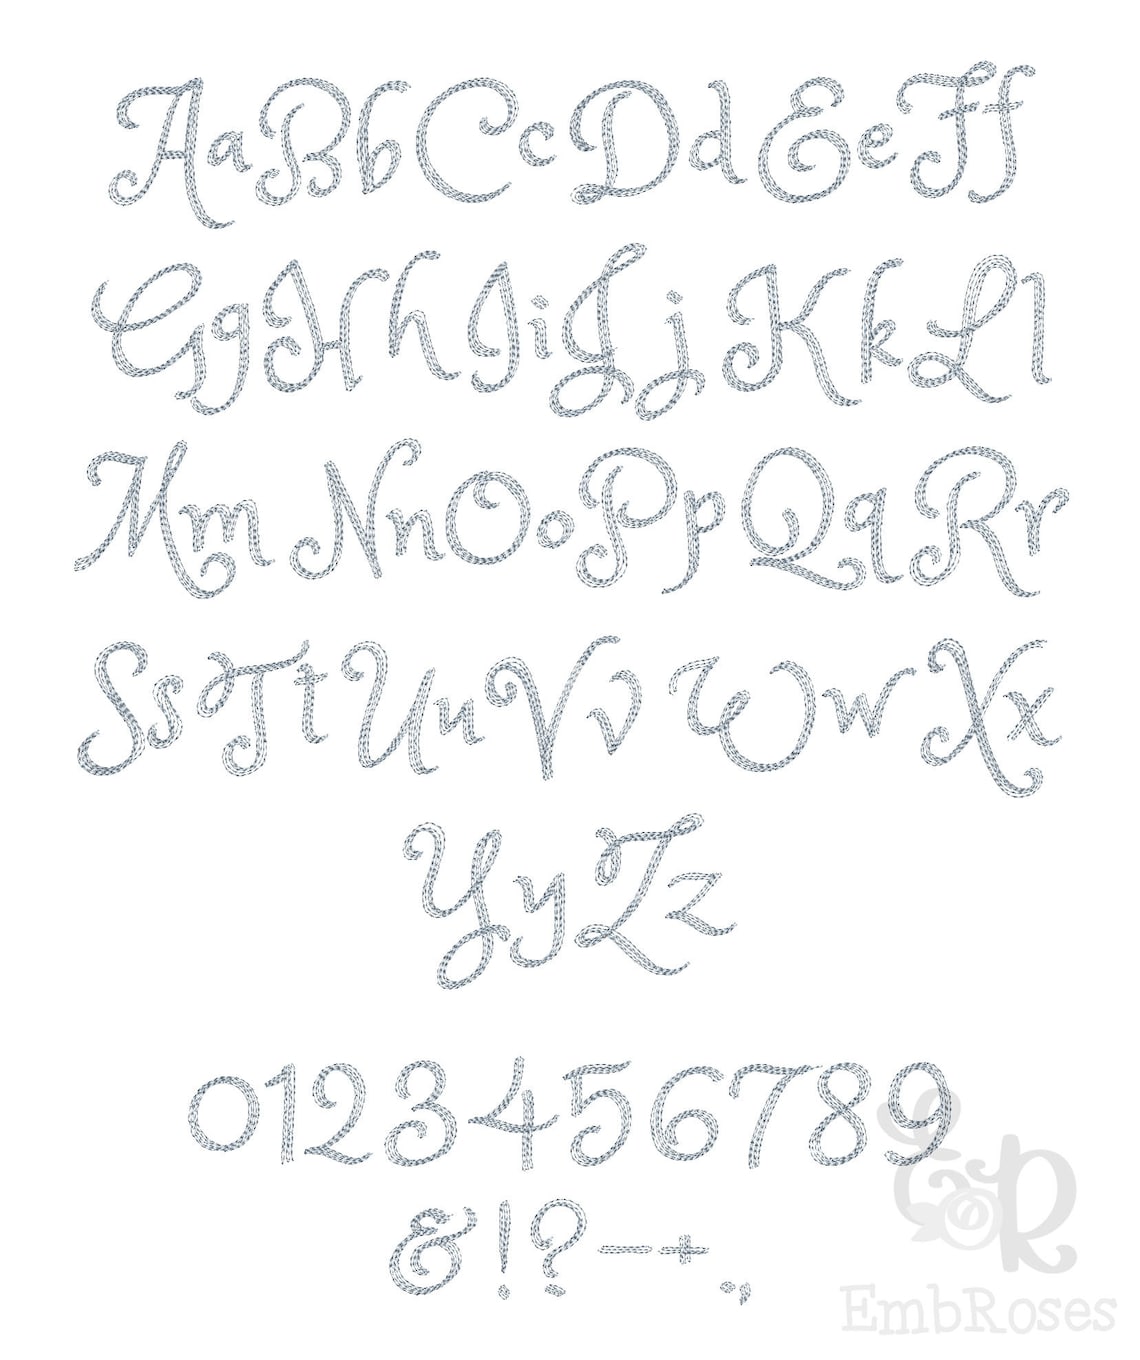 AaBbCcDdEeFf
GgHhIiJjKkLl
MmNnOoPpQqRr
SsTtUuVvWwXx
YyZz
0123456789
&!?-+.,
E&R
EmbRoses